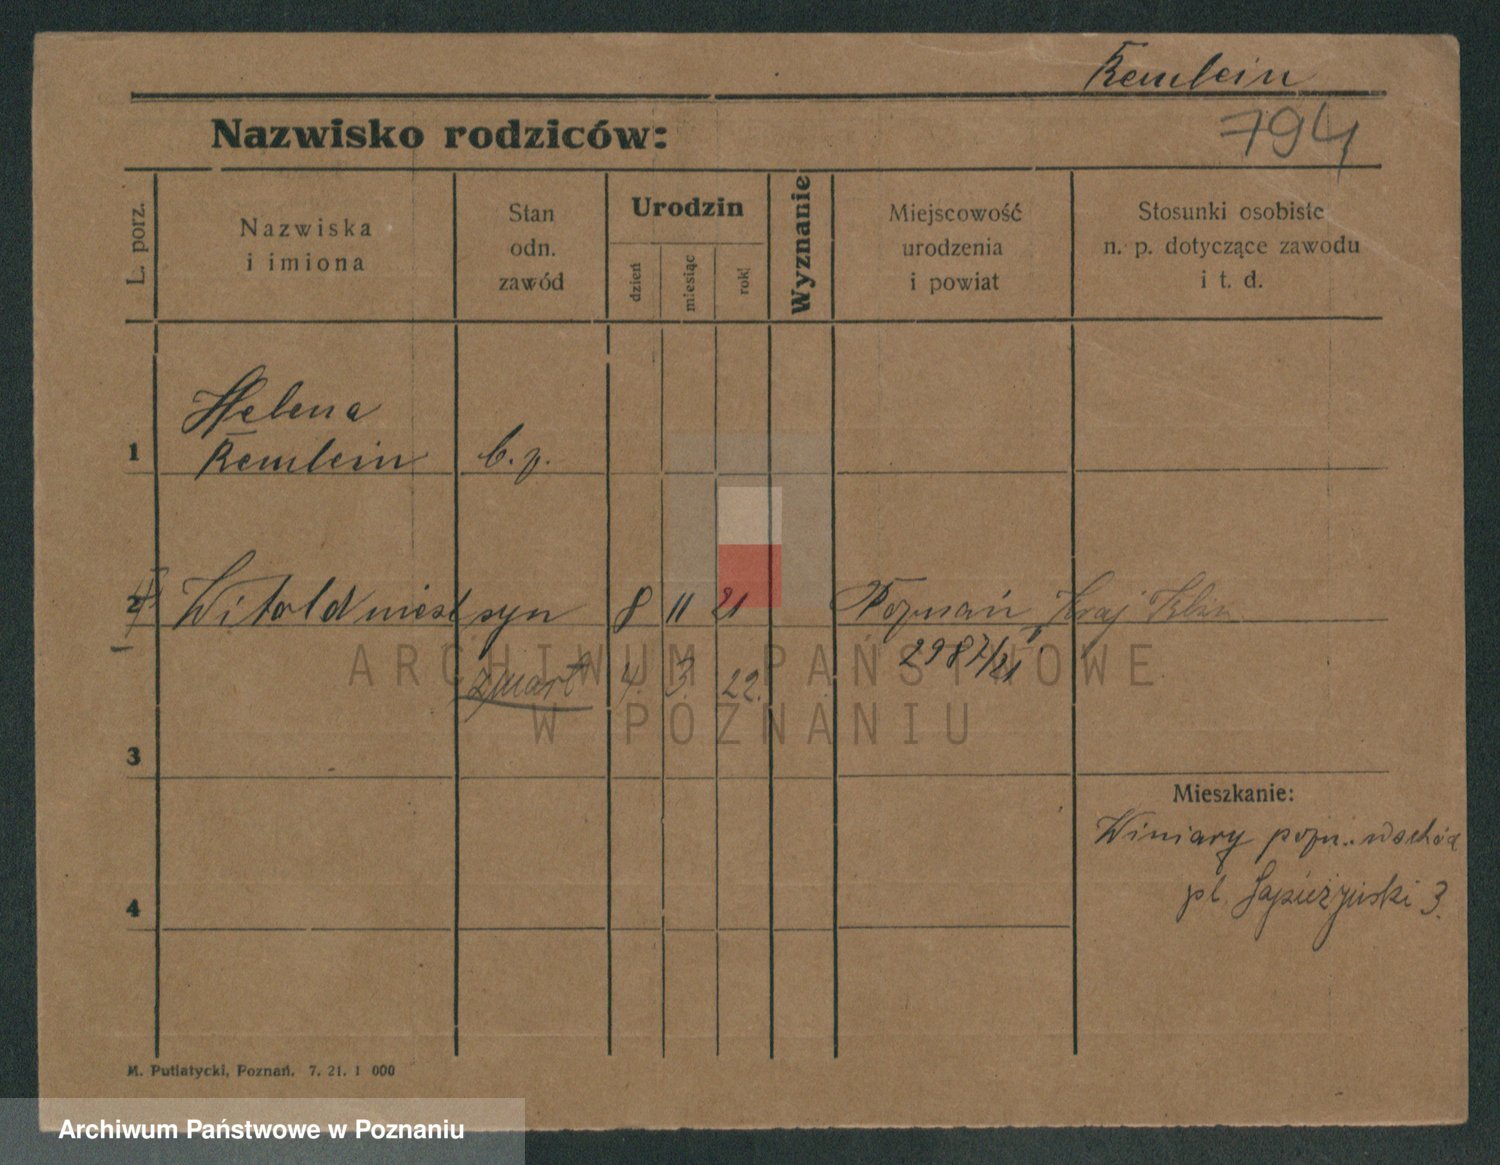 Remlein
Nazwisko rodziców:
794
L. porz.
Nazwiska
i imiona
Stan
odn.
zawód
Urodzin
dzień
miesiąc
rok
Wyznanie
Miejscowość
urodzenia
i powiat
Stosunki osobiste
n. p. dotyczące zawodu
i t. d.
Helena
1 Remlein b. p.
2 Witold niesl syn 8 11 21 Poznań Kraj
2987/21
zmarł 4. 3. 22.
ARCHIWUM PAŃSTWOWE
W POZNANIU
3
Mieszkanie:
Winiary pozn. wschód
4
pl. Sapieżyński 3.
M. Putiatycki, Poznań. 7. 21. 1 000
Archiwum Państwowe w Poznaniu